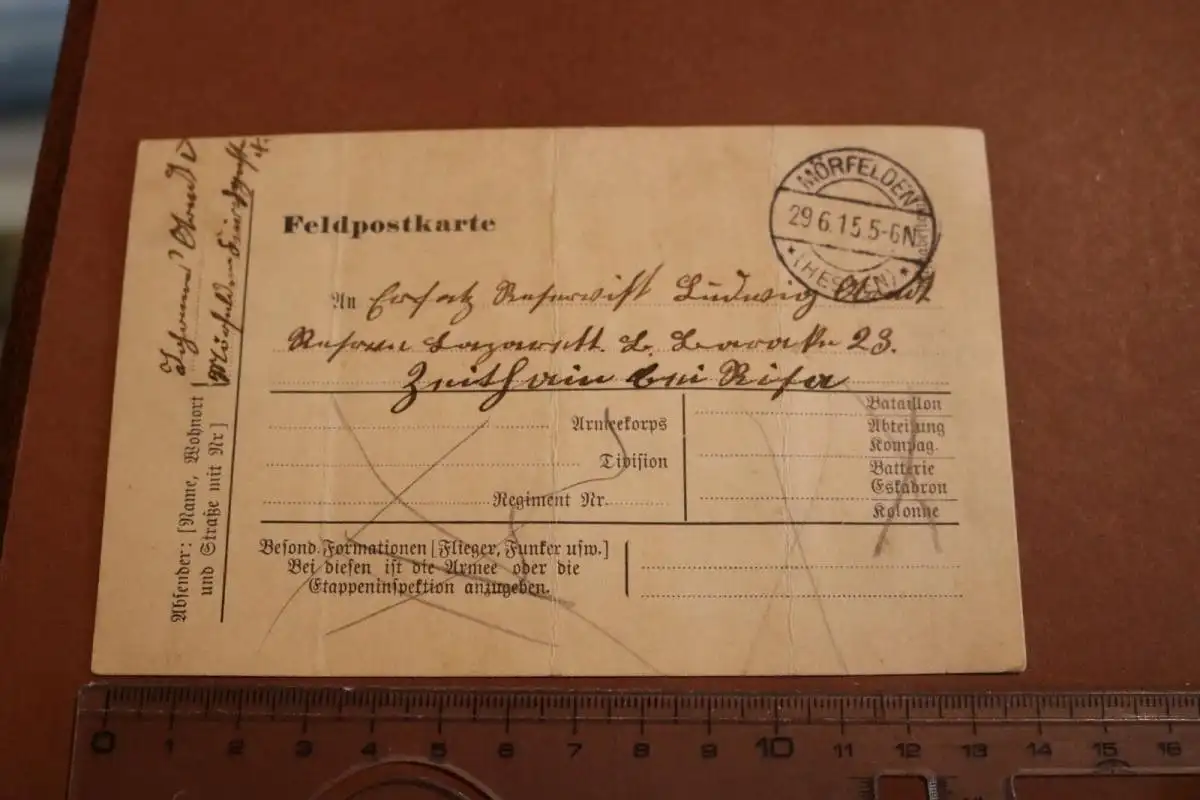 Feldpostkarte
MÖRFELDEN
29 6.15.5-6N
* (HESSEN) *
An Ersatz Reservist Ludwig
Reserve Lazarett. b. Baracke 23.
Zeithain bei Risa
Armeekorps
Division
Regiment Nr.
Bataillon
Abteilung
Kompag.
Batterie
Eskadron
Kolonne
Besond. Formationen [Flieger, Funker usw.]
Bei diesen ist die Armee oder die
Etappeninspektion anzugeben.
Absender: [Name, Wohnort
und Straße mit Nr]
Mörfelden
0 1 2 3 4 5 6 7 8 9 10 11 12 13 14 15 16